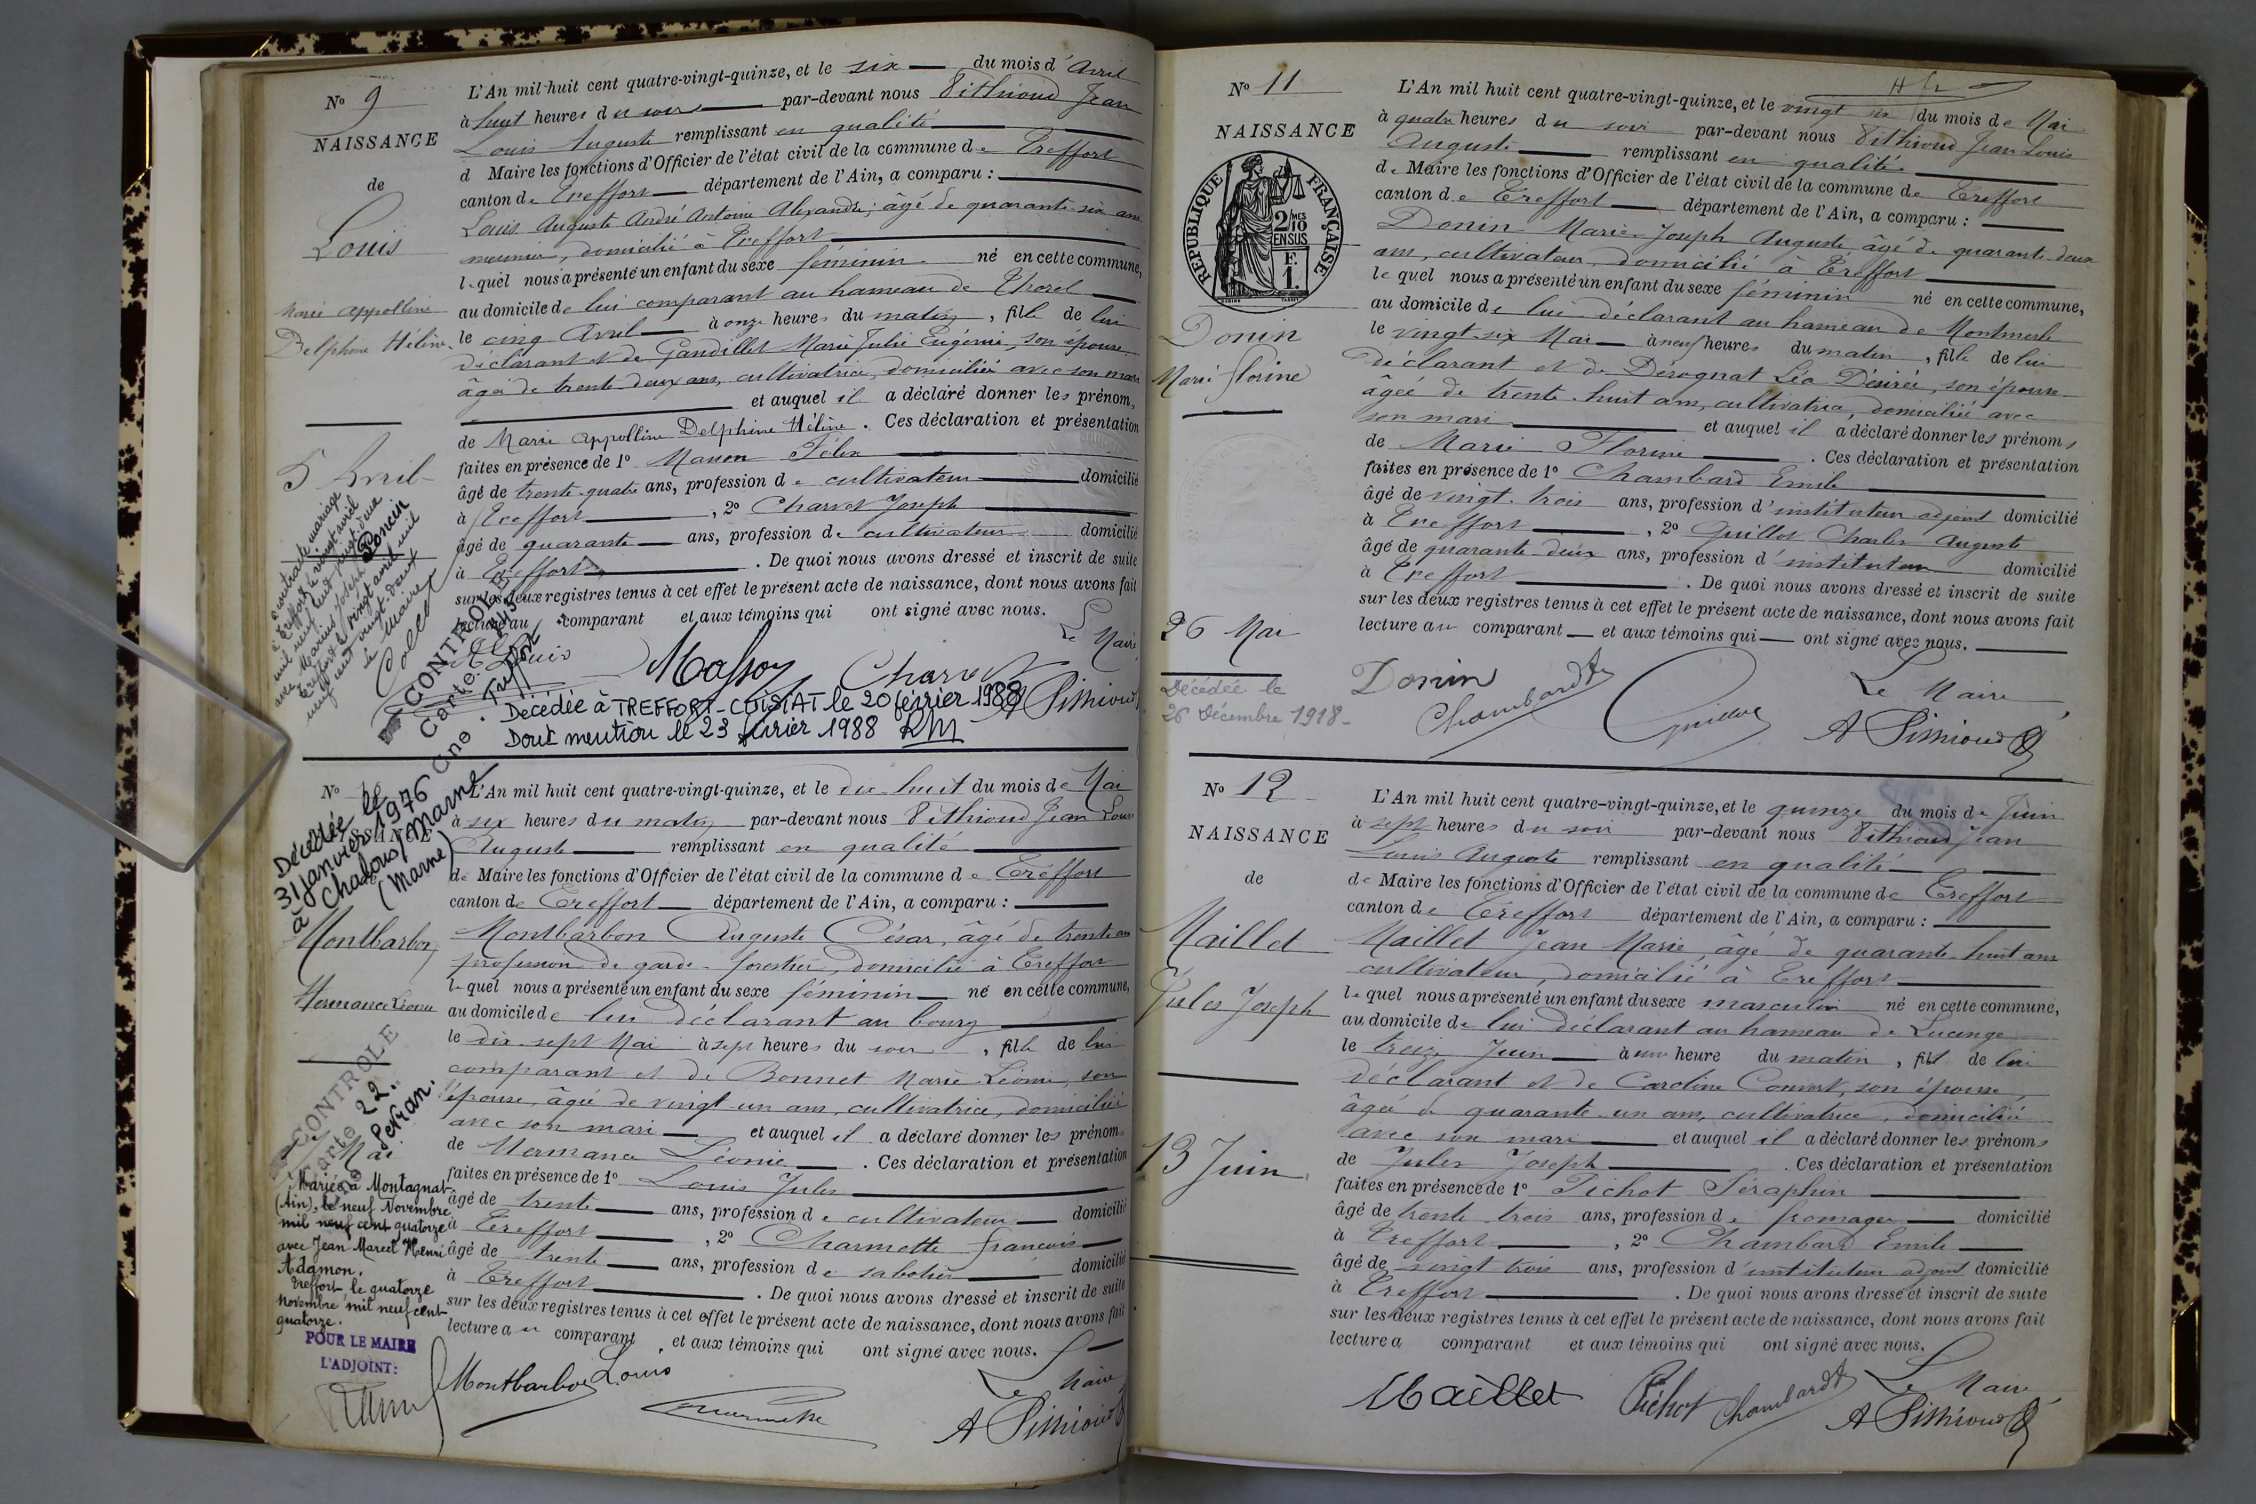 N° 9
NAISSANCE
de
Louis
Marie Appolline
Delphine Hélène
5 Avril
a contracté mariage
à Treffort le vingt avril
mil neuf cent vingt-deux
avec Marius Joseph Poncin
Treffort le vingt avril mil
neuf cent vingt-deux
Le maire
Collet
CONTROLE
Carte
Cne. Treffort
L'An mil huit cent quatre-vingt-quinze, et le six du mois d'Avril
à huit heures du soir par-devant nous Pithioud Jean
Louis Auguste remplissant en qualité
d Maire les fonctions d'Officier de l'état civil de la commune de Treffort
canton de Treffort département de l'Ain, a comparu :
Louis Auguste André Antoine Alexandre, âgé de quarante-six ans
meunier, domicilié à Treffort
lequel nous a présenté un enfant du sexe féminin né en cette commune,
au domicile de lui comparant au hameau de
le cinq Avril à onze heures du matin, fille de lui
déclarant et de Gandillet Marie Julie Eugénie, son épouse,
âgée de trente deux ans, cultivatrice, domiciliée avec son mari
et auquel il a déclaré donner les prénoms
de Marie Appolline Delphine Hélène. Ces déclaration et présentation
faites en présence de 1° Félix
âgé de trente quatre ans, profession de cultivateur domicilié
à Treffort, 2° Charvet Joseph
âgé de quarante ans, profession de cultivateur domicilié
à Treffort. De quoi nous avons dressé et inscrit de suite
sur les deux registres tenus à cet effet le présent acte de naissance, dont nous avons fait
lecture au comparant et aux témoins qui ont signé avec nous.
Le Maire
A Louis Charvet
A Pithioud
Décédée à TREFFORT-CUISIAT le 20 février 1988
Dont mention le 23 février 1988
N° 10
NAISSANCE
de
Décédée le
31 janvier 1976
à Chalons/Marne
(Marne)
Montbarbon
Hermance Léonie
CONTROLE
Carte 22.
Cne
Mai
Mariée à Montagnat
(Ain), le neuf Novembre
mil neuf cent quatorze
avec Jean Marcel Henri
Adamon.
Treffort le quatorze
Novembre mil neuf cent
quatorze.
POUR LE MAIRE
L'ADJOINT:
L'An mil huit cent quatre-vingt-quinze, et le dix huit du mois de Mai
à six heures du matin par-devant nous Pithioud Jean Louis
Auguste remplissant en qualité
de Maire les fonctions d'Officier de l'état civil de la commune de Treffort
canton de Treffort département de l'Ain, a comparu :
Montbarbon Auguste César, âgé de trente ans
profession de garde-forestier, domicilié à Treffort
lequel nous a présenté un enfant du sexe féminin né en cette commune,
au domicile de lui déclarant au bourg
le dix-sept Mai à sept heures du soir, fille de lui
comparant et de Bonnet Marie Léonie, son
épouse, âgée de vingt-un ans, cultivatrice, domiciliée
avec son mari et auquel il a déclaré donner les prénoms
de Hermance Léonie. Ces déclaration et présentation
faites en présence de 1° Louis Jules
âgé de trente ans, profession de cultivateur domicilié
à Treffort, 2° Charmette François
âgé de trente ans, profession de sabotier domicilié
à Treffort. De quoi nous avons dressé et inscrit de suite
sur les deux registres tenus à cet effet le présent acte de naissance, dont nous avons fait
lecture au comparant et aux témoins qui ont signé avec nous.
Montbarbon Louis Charmette
Le Maire
A Pithioud
N° 11
NAISSANCE
REPUBLIQUE FRANÇAISE
2/10MES
EN SUS
F.
1.
Donin
Marie Florine
26 Mai
Décédée le
26 Décembre 1918
L'An mil huit cent quatre-vingt-quinze, et le vingt six du mois de Mai
à quatre heures du soir par-devant nous Pithioud Jean Louis
Auguste remplissant en qualité
de Maire les fonctions d'Officier de l'état civil de la commune de Treffort
canton de Treffort département de l'Ain, a comparu :
Donin Marie Joseph Auguste, âgé de quarante-deux
ans, cultivateur, domicilié à Treffort
lequel nous a présenté un enfant du sexe féminin né en cette commune,
au domicile de lui déclarant au hameau de Montmerle
le vingt-six Mai à neuf heures du matin, fille de lui
déclarant et de Dérognat Léa Désirée, son épouse
âgée de trente-huit ans, cultivatrice, domiciliée avec
son mari et auquel il a déclaré donner les prénoms
de Marie Florine. Ces déclaration et présentation
faites en présence de 1° Chambard Emile
âgé de vingt-trois ans, profession d'instituteur adjoint domicilié
à Treffort, 2° Guillot Charles Auguste
âgé de quarante-deux ans, profession d'instituteur domicilié
à Treffort. De quoi nous avons dressé et inscrit de suite
sur les deux registres tenus à cet effet le présent acte de naissance, dont nous avons fait
lecture au comparant et aux témoins qui ont signé avec nous.
Donin Chambard Guillot
Le Maire
A Pithioud
N° 12
NAISSANCE
de
Maillet
Jules Joseph
13 Juin
L'An mil huit cent quatre-vingt-quinze, et le quinze du mois de Juin
à sept heures du soir par-devant nous Pithioud Jean
Louis Auguste remplissant en qualité
de Maire les fonctions d'Officier de l'état civil de la commune de Treffort
canton de Treffort département de l'Ain, a comparu :
Maillet Jean Marie, âgé de quarante-huit ans
cultivateur, domicilié à Treffort
lequel nous a présenté un enfant du sexe masculin né en cette commune,
au domicile de lui déclarant au hameau de Lucinge
le treize Juin à une heure du matin, fils de lui
déclarant et de Caroline Convert, son épouse
âgée de quarante-un ans, cultivatrice, domiciliée
avec son mari et auquel il a déclaré donner les prénoms
de Jules Joseph. Ces déclaration et présentation
faites en présence de 1° Pichot Séraphin
âgé de trente-trois ans, profession de fromager domicilié
à Treffort, 2° Chambard Emile
âgé de vingt trois ans, profession d'instituteur adjoint domicilié
à Treffort. De quoi nous avons dressé et inscrit de suite
sur les deux registres tenus à cet effet le présent acte de naissance, dont nous avons fait
lecture a comparant et aux témoins qui ont signé avec nous.
Maillet Pichot Chambard
Le Maire
A Pithioud